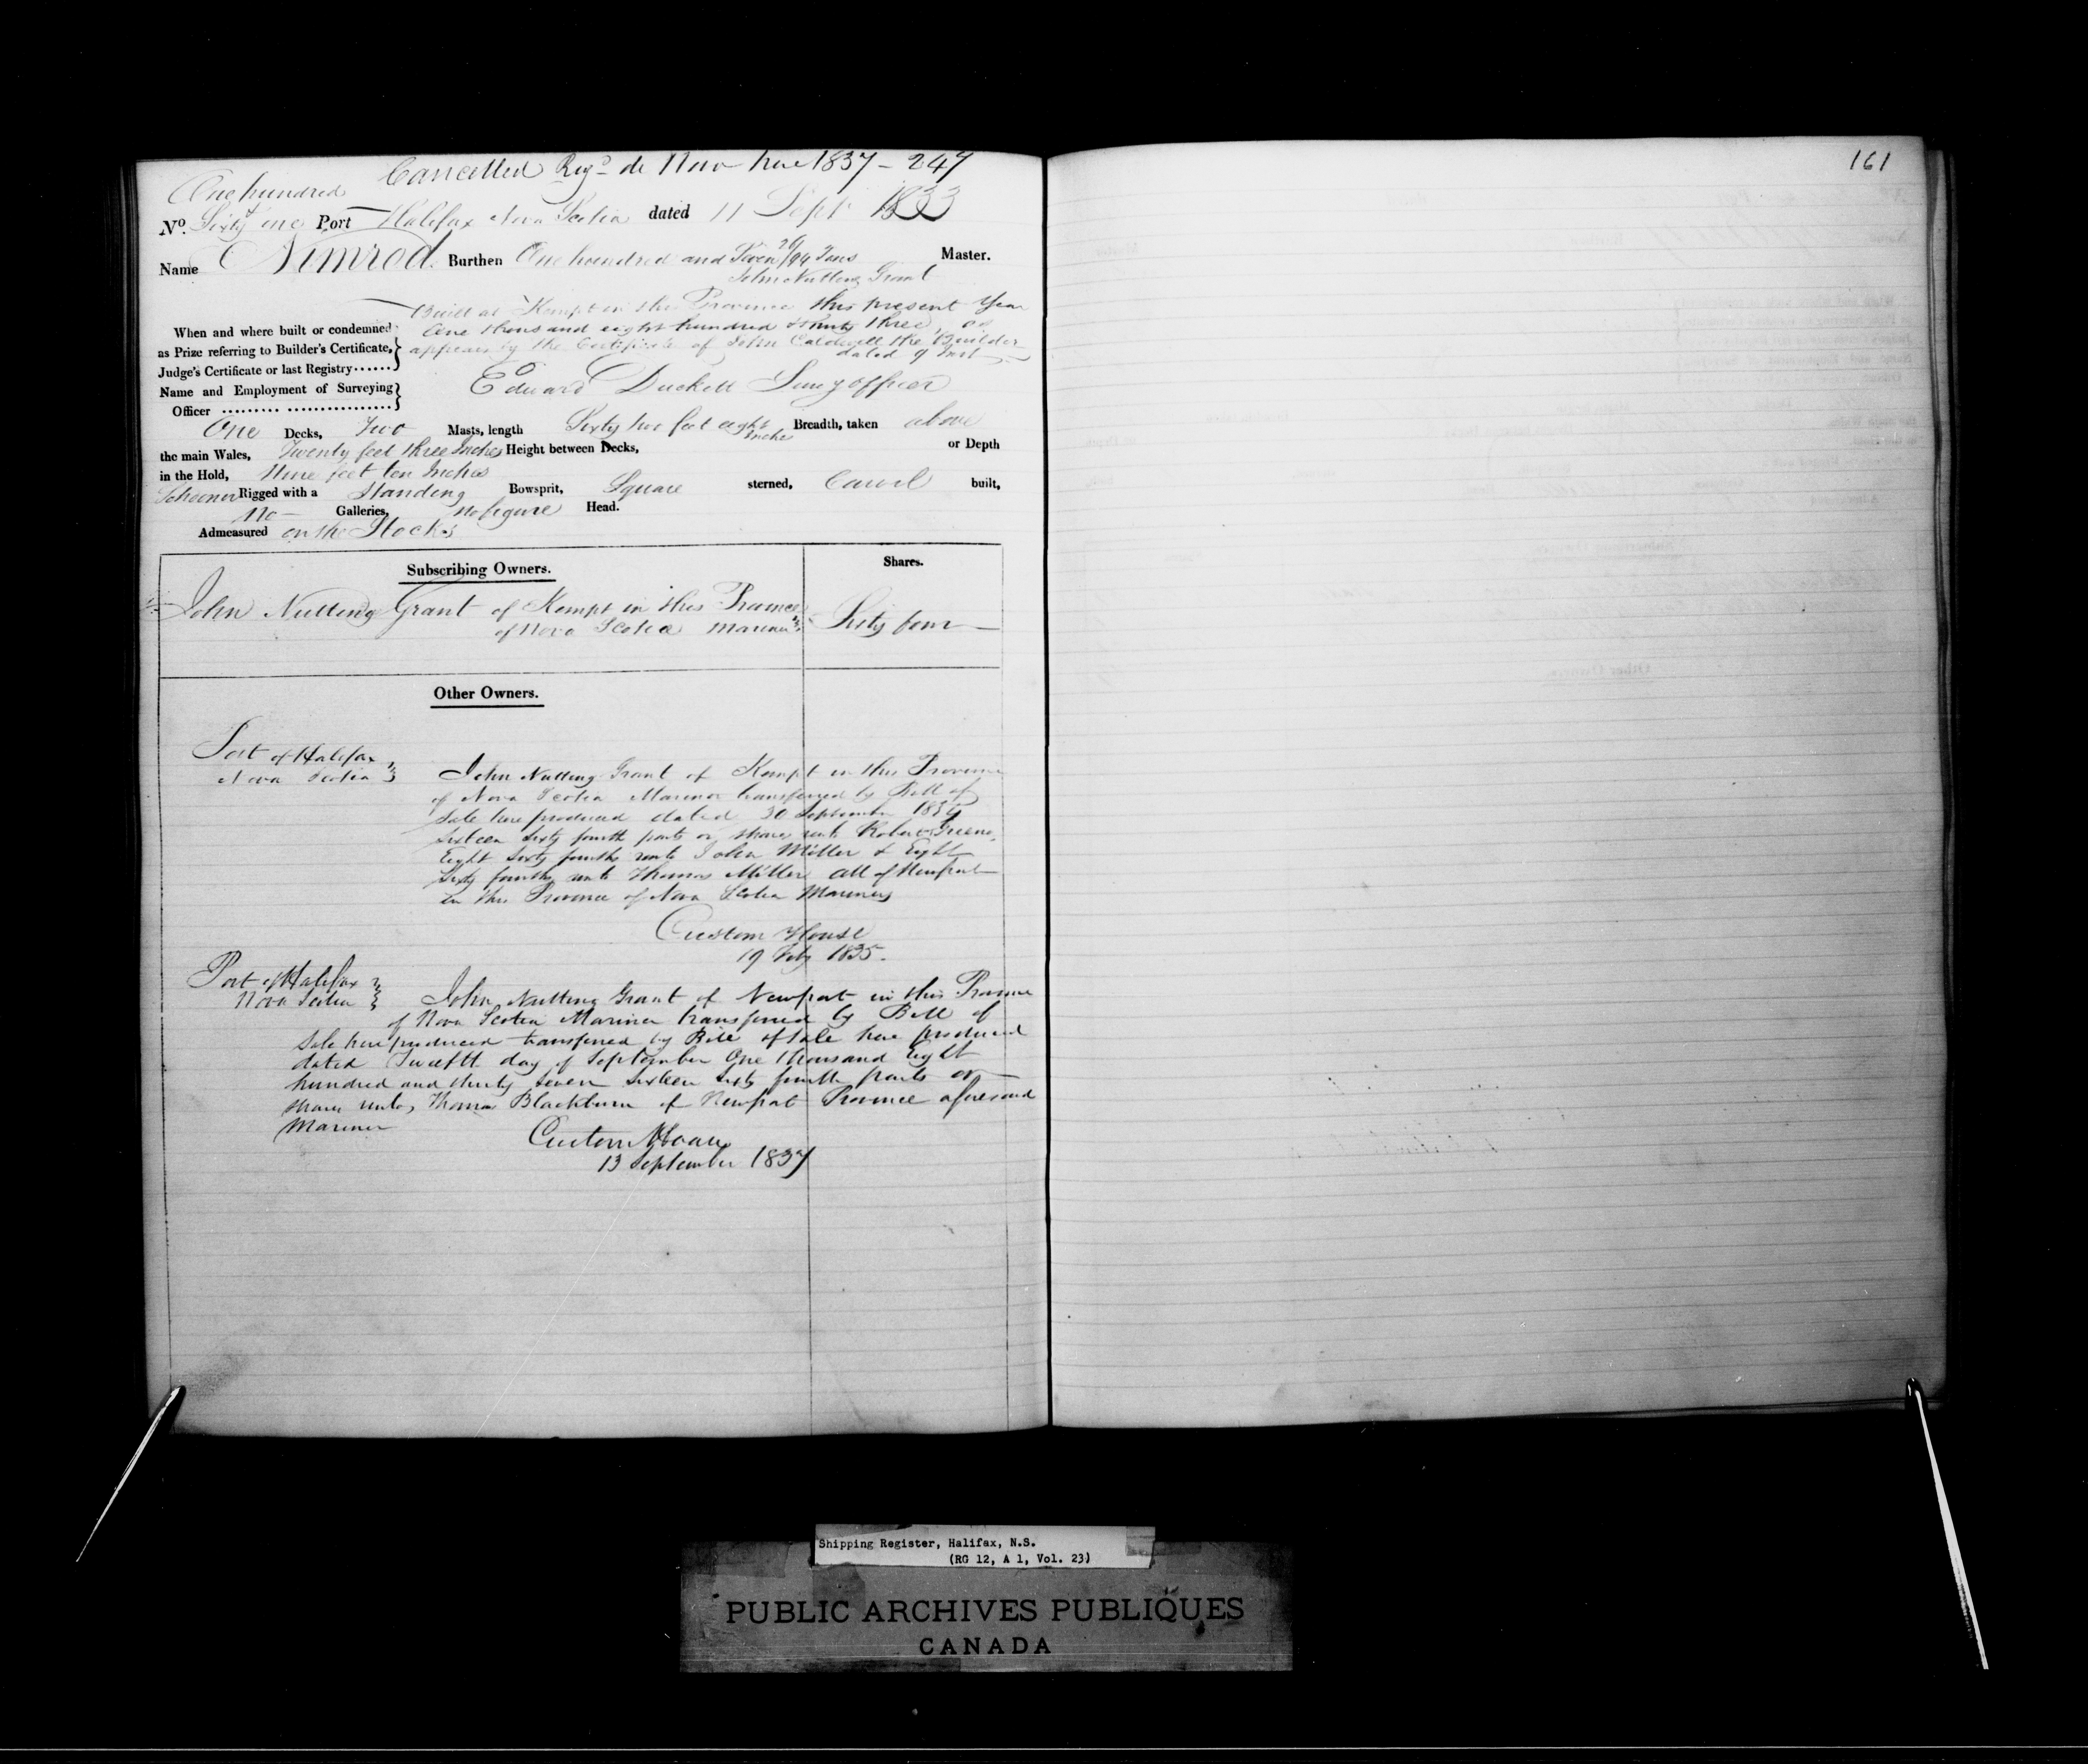 Cancelled Reg.d de Novo here 1837 - 247
161
One hundred
No. Sixty one Port Halifax Nova Scotia dated 11 Sept 1833
Name Nimrod. Burthen One hundred and Seven 26/94 Tons Master.
John Nutting Grant
Built at Kempt in this Province this present Year
When and where built or condemned One thousand eight hundred & thirty three, as
as Prize referring to Builder's Certificate, appears by the Certificate of John Caldwell the Builder
dated 9 Inst
Judge's Certificate or last Registry......
Name and Employment of Surveying Edward Duckett Surv'g officer
Officer
One Decks, Two Masts, length Sixty two feet eight Inches Breadth, taken above
the main Wales, Twenty feet three Inches Height between Decks, or Depth
in the Hold, Nine feet ten Inches
Schooner Rigged with a Standing Bowsprit, Square sterned, Carvel built,
No Galleries, No figure Head.
Admeasured on the Stocks
Subscribing Owners. Shares.
John Nutting Grant of Kempt in this Province
of Nova Scotia Mariner Sixty four
Other Owners.
Port of Halifax
Nova Scotia John Nutting Grant of Kempt in this Province
of Nova Scotia Mariner transferred by Bill of
Sale here produced dated 30 September
Sixteen Sixty fourth parts or shares unto Robert Greeno,
Eight Sixty fourths unto John Miller & Eight
Sixty fourths unto Thomas Miller all of Newport
in this Province of Nova Scotia Mariners
Custom House
19 Feby 1835.
Port of Halifax
Nova Scotia John Nutting Grant of Newport in this Province
of Nova Scotia Mariner transferred by Bill of
Sale here produced transferred by Bill of Sale here produced
dated Twelfth day of September One thousand Eight
hundred and thirty seven Sixteen Sixty fourth parts or
shares unto Thomas Blackburn of Newport Province aforesaid
Mariner
Custom House
13 September 1837
Shipping Register, Halifax, N.S.
(RG 12, A 1, Vol. 23)
PUBLIC ARCHIVES PUBLIQUES
CANADA